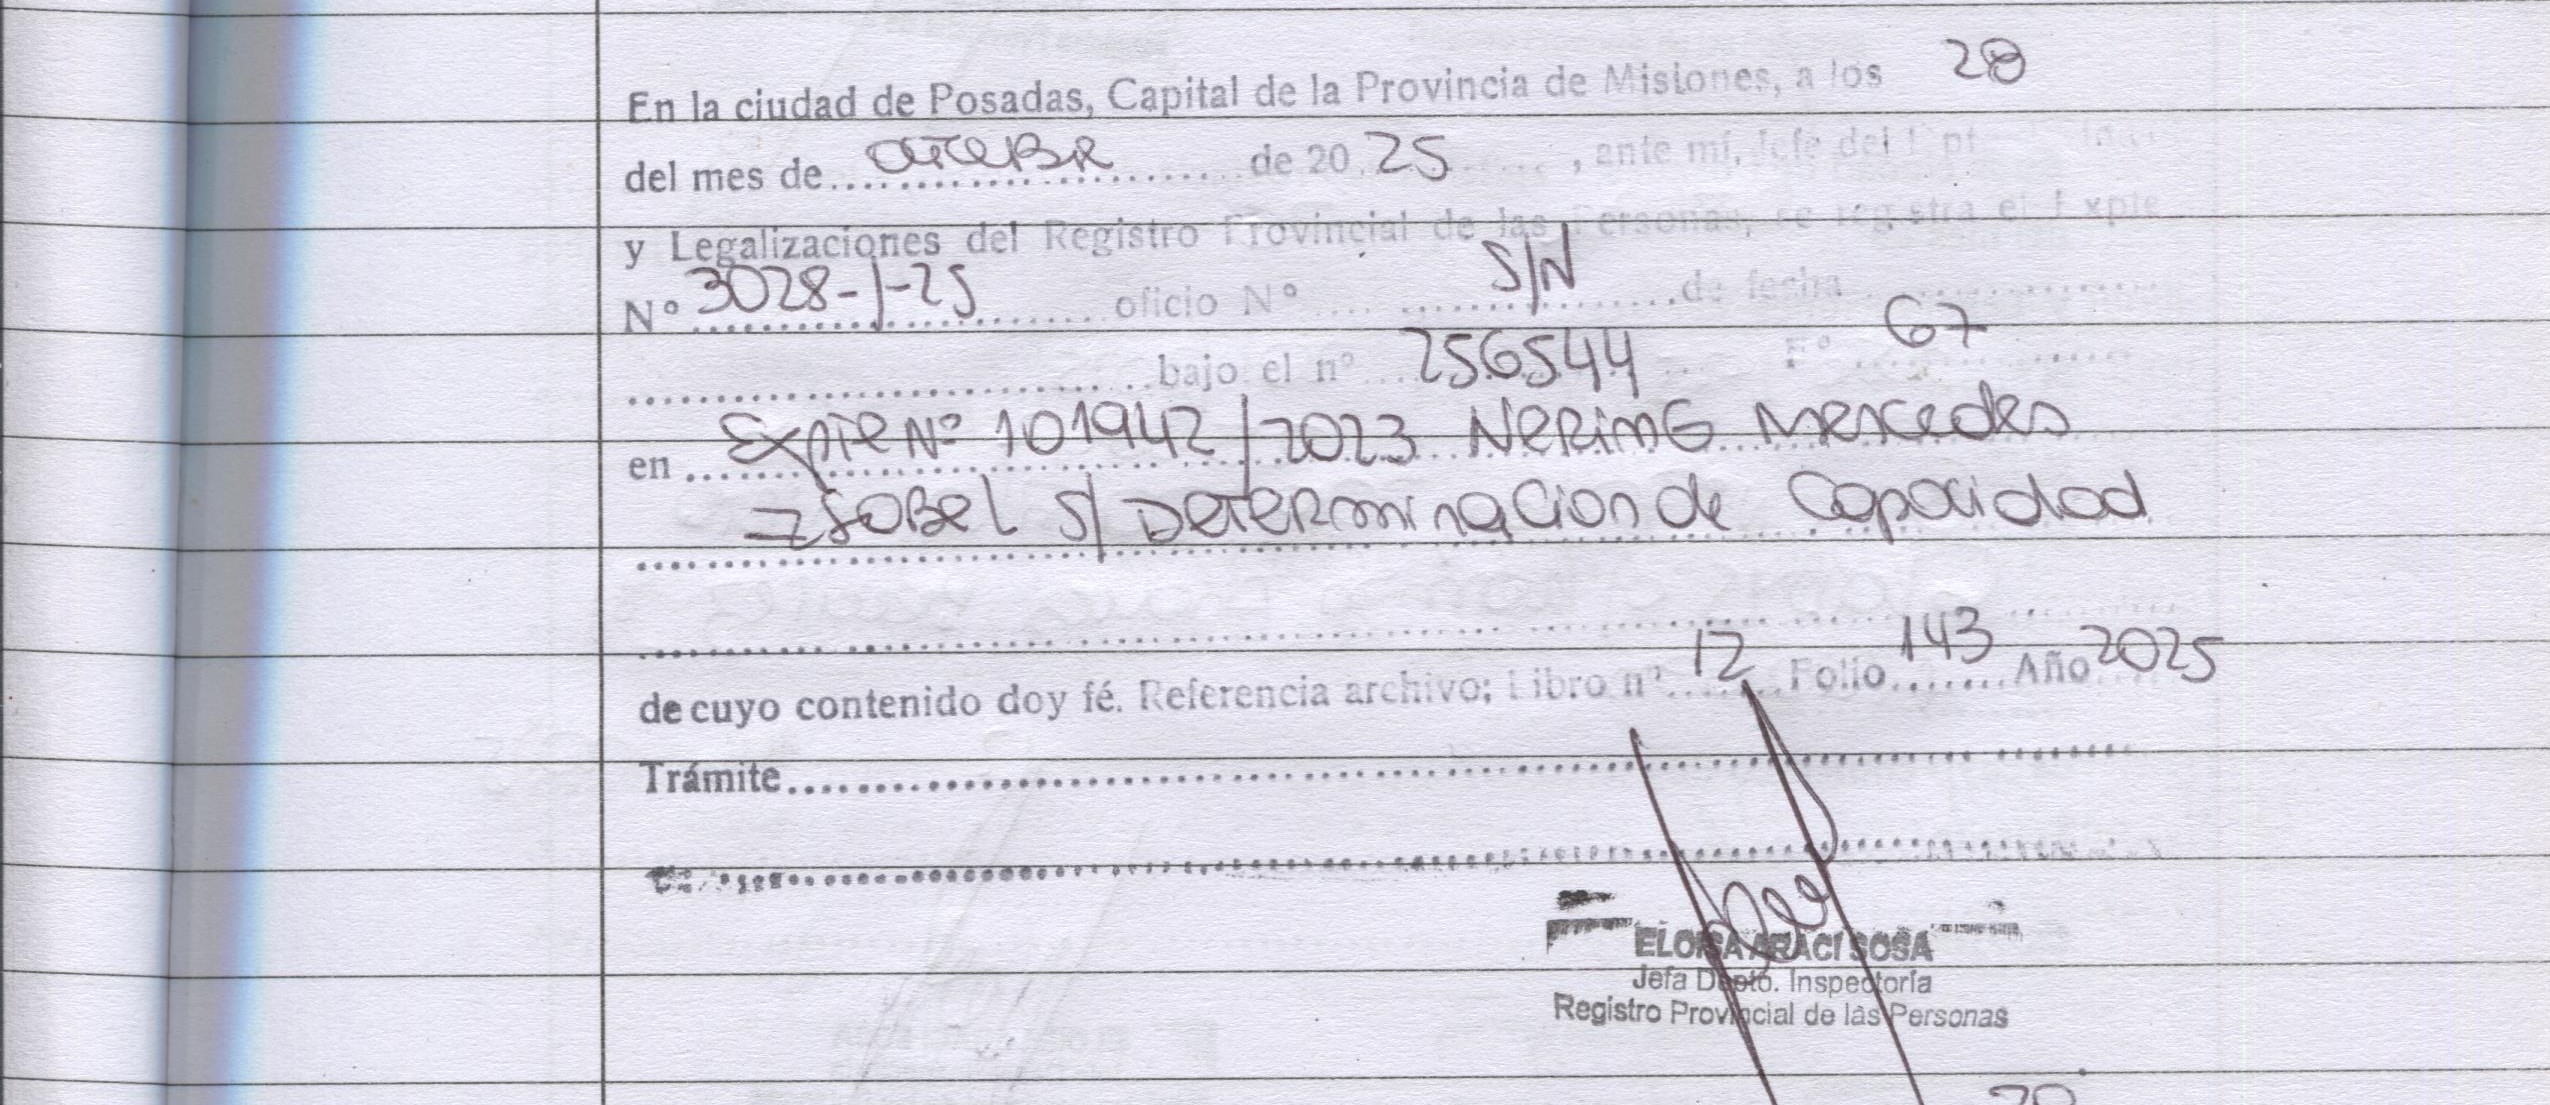 En la ciudad de Posadas, Capital de la Provincia de Misiones, a los 28
del mes de octubr de 20 25, ante mí, Jefe del
y Legalizaciones del Registro Provincial de las Personas, se registra el Expte
Nº 3028-1-25 oficio Nº S/N de fecha
bajo el nº 256544 Fº 67
en Expte Nº 101942/2023 NERING Mercedes
ISABEL S/ DETERMINACION de Capacidad
de cuyo contenido doy fé. Referencia archivo; Libro nº 12 Folio 143 Año 2025
Trámite
ELOISA ARACI SOSA
Jefa Depto. Inspectoría
Registro Provincial de las Personas